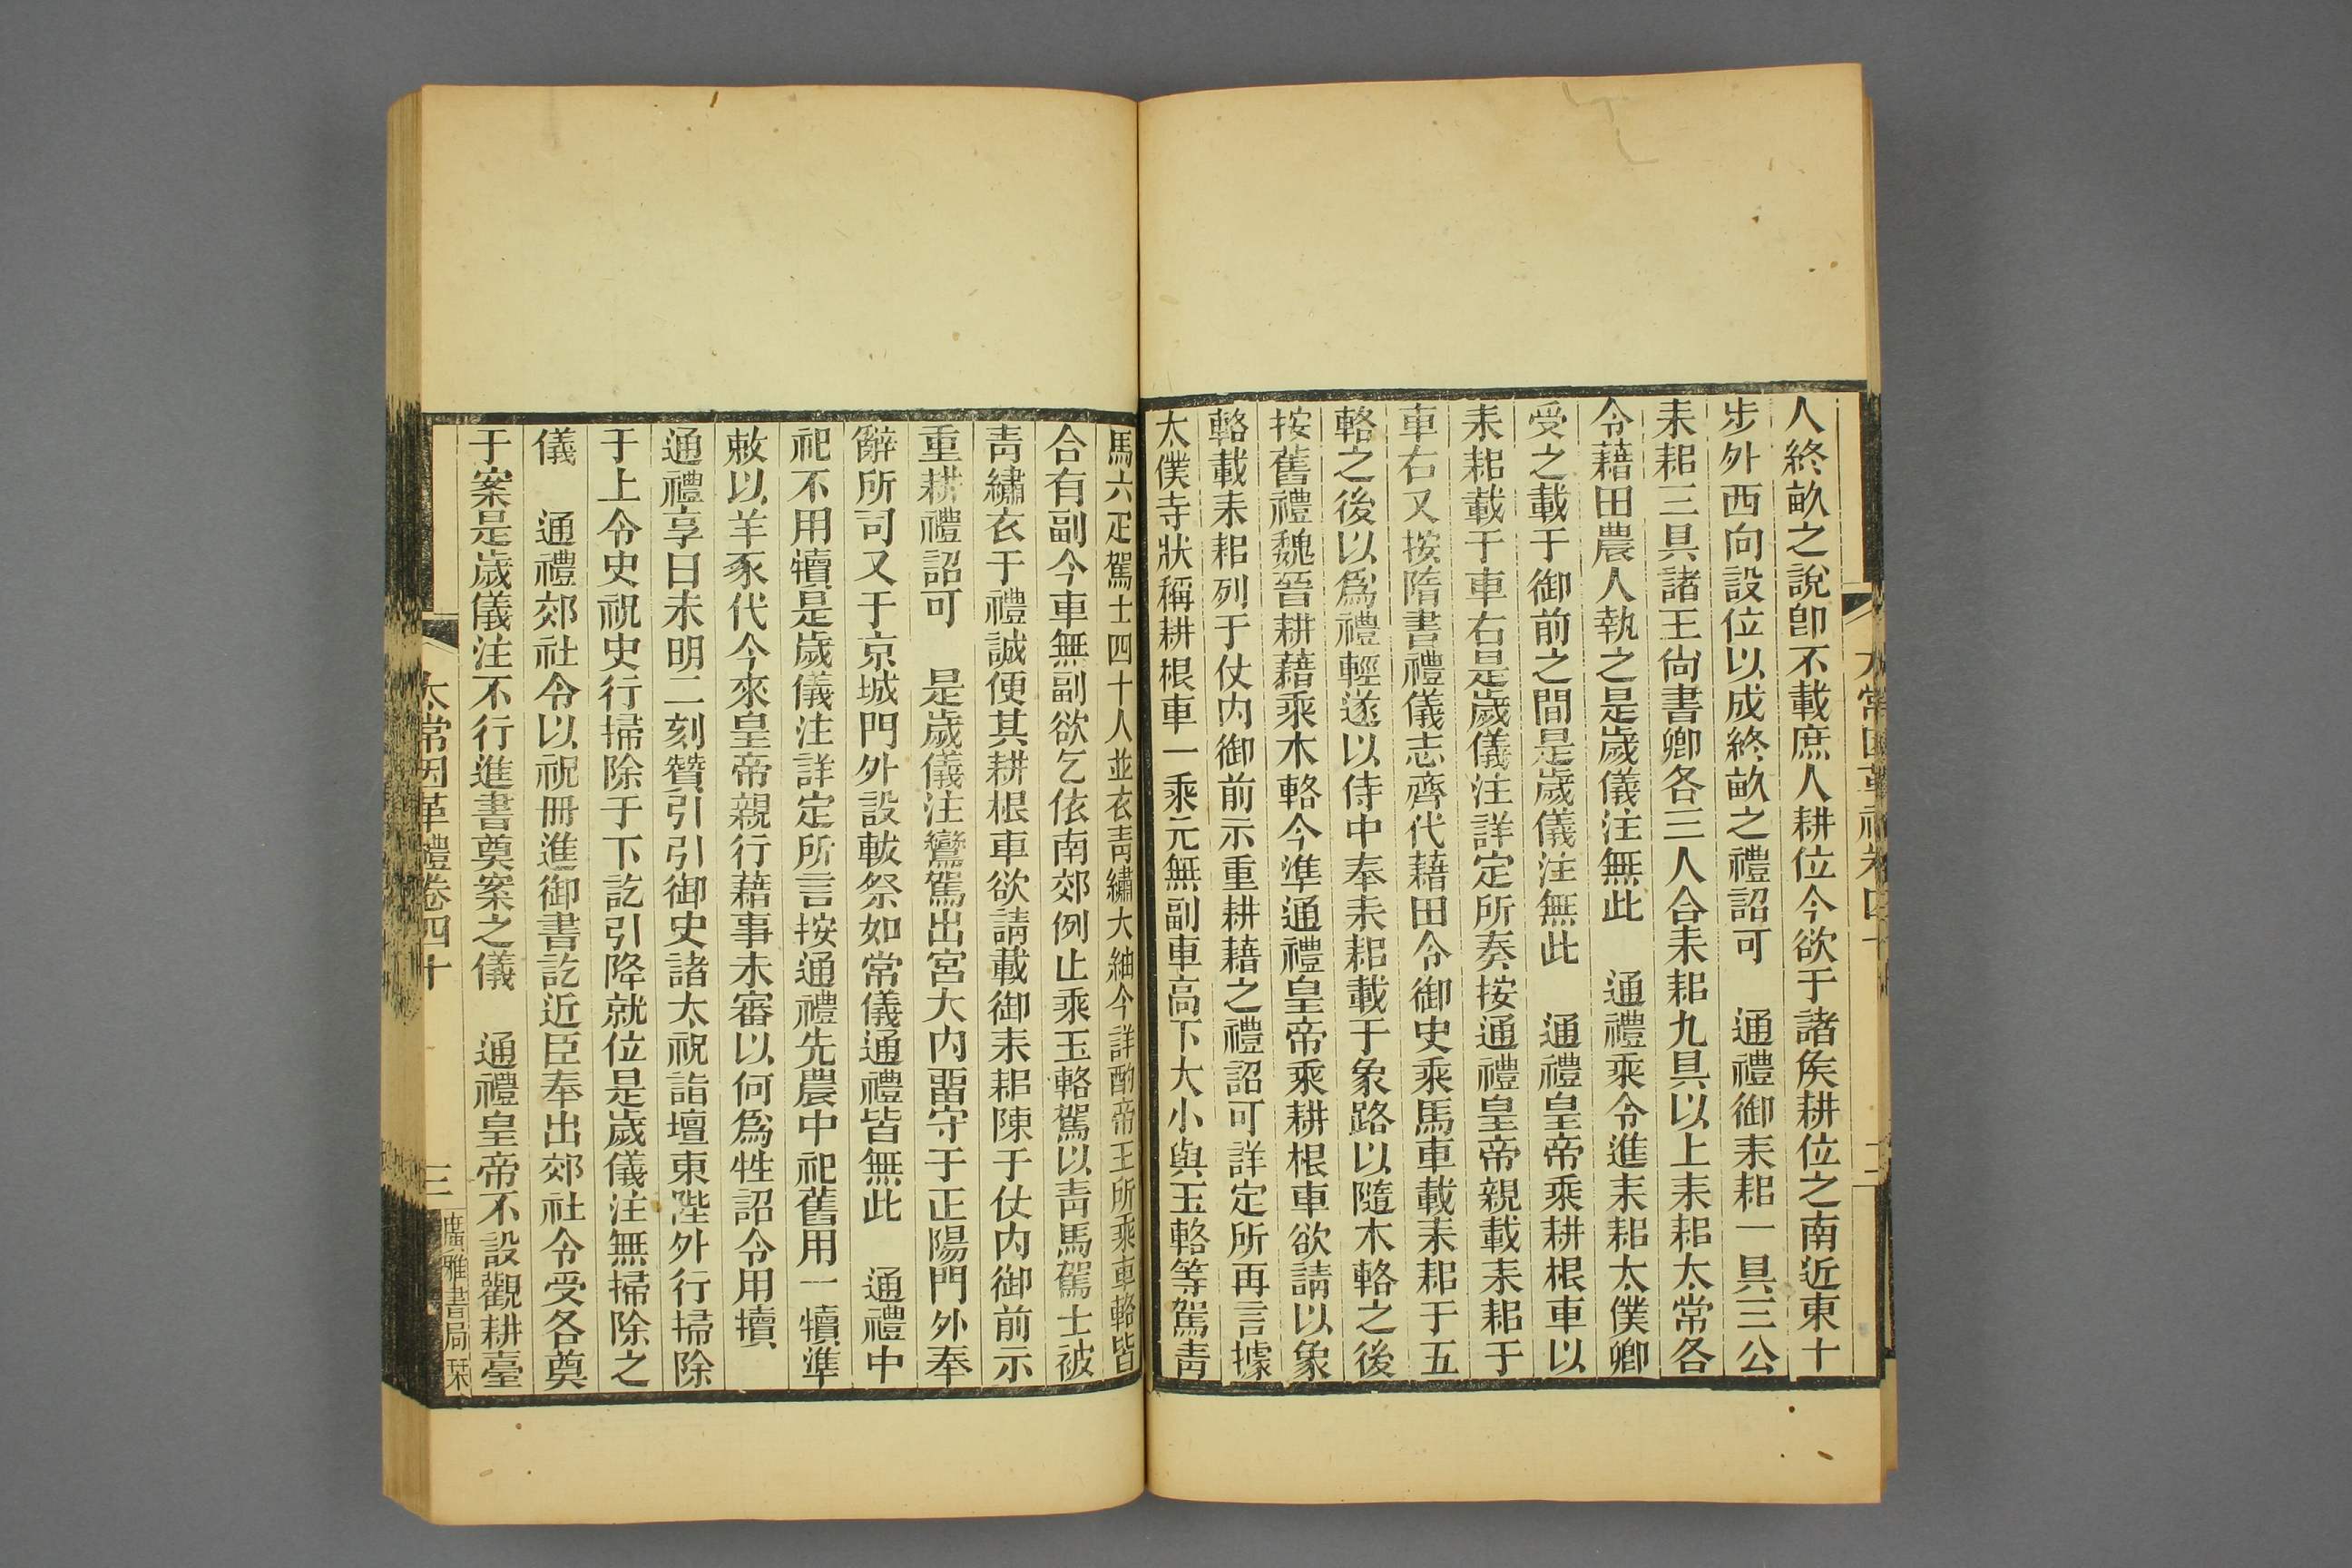 太常因革禮卷四十
二
人終畝之說卽不載庶人耕位今欲于諸侯耕位之南近東十
步外西向設位以成終畝之禮詔可　通禮御耒耜一具三公
耒耜三具諸王尙書卿各三人合耒耜九具以上耒耜太常各
令藉田農人執之是歲儀注無此　通禮乘令進耒耜太僕卿
受之載于御前之間是歲儀注無此　通禮皇帝乘耕根車以
耒耜載于車右是歲儀注詳定所奏按通禮皇帝親載耒耜于
車右又按隋書禮儀志齊代藉田令御史乘馬車載耒耜于五
輅之後以爲禮輕遂以侍中奉耒耜載于象路以隨木輅之後
按舊禮魏晉耕藉乘木輅今準通禮皇帝乘耕根車欲請以象
輅載耒耜列于仗內御前示重耕藉之禮詔可詳定所再言據
太僕寺狀稱耕根車一乘元無副車高下大小與玉輅等駕靑
馬六疋駕士四十人並衣靑繡大紬今詳酌帝王所乘車輅皆
合有副今車無副欲乞依南郊例止乘玉輅駕以靑馬駕士被
靑繡衣于禮誠便其耕根車欲請載御耒耜陳于仗內御前示
重耕禮詔可　是歲儀注鸞駕出宮大內畱守于正陽門外奉
辭所司又于京城門外設軷祭如常儀通禮皆無此　通禮中
祀不用犢是歲儀注詳定所言按通禮先農中祀舊用一犢準
敕以羊豕代今來皇帝親行藉事未審以何爲牲詔令用犢
通禮享日未明二刻贊引引御史諸太祝詣壇東陛外行掃除
于上令史祝史行掃除于下訖引降就位是歲儀注無掃除之
儀　通禮郊社令以祝冊進御書訖近臣奉出郊社令受各奠
于案是歲儀注不行進書奠案之儀　通禮皇帝不設觀耕臺
太常因革禮卷四十
三
廣雅書局栞